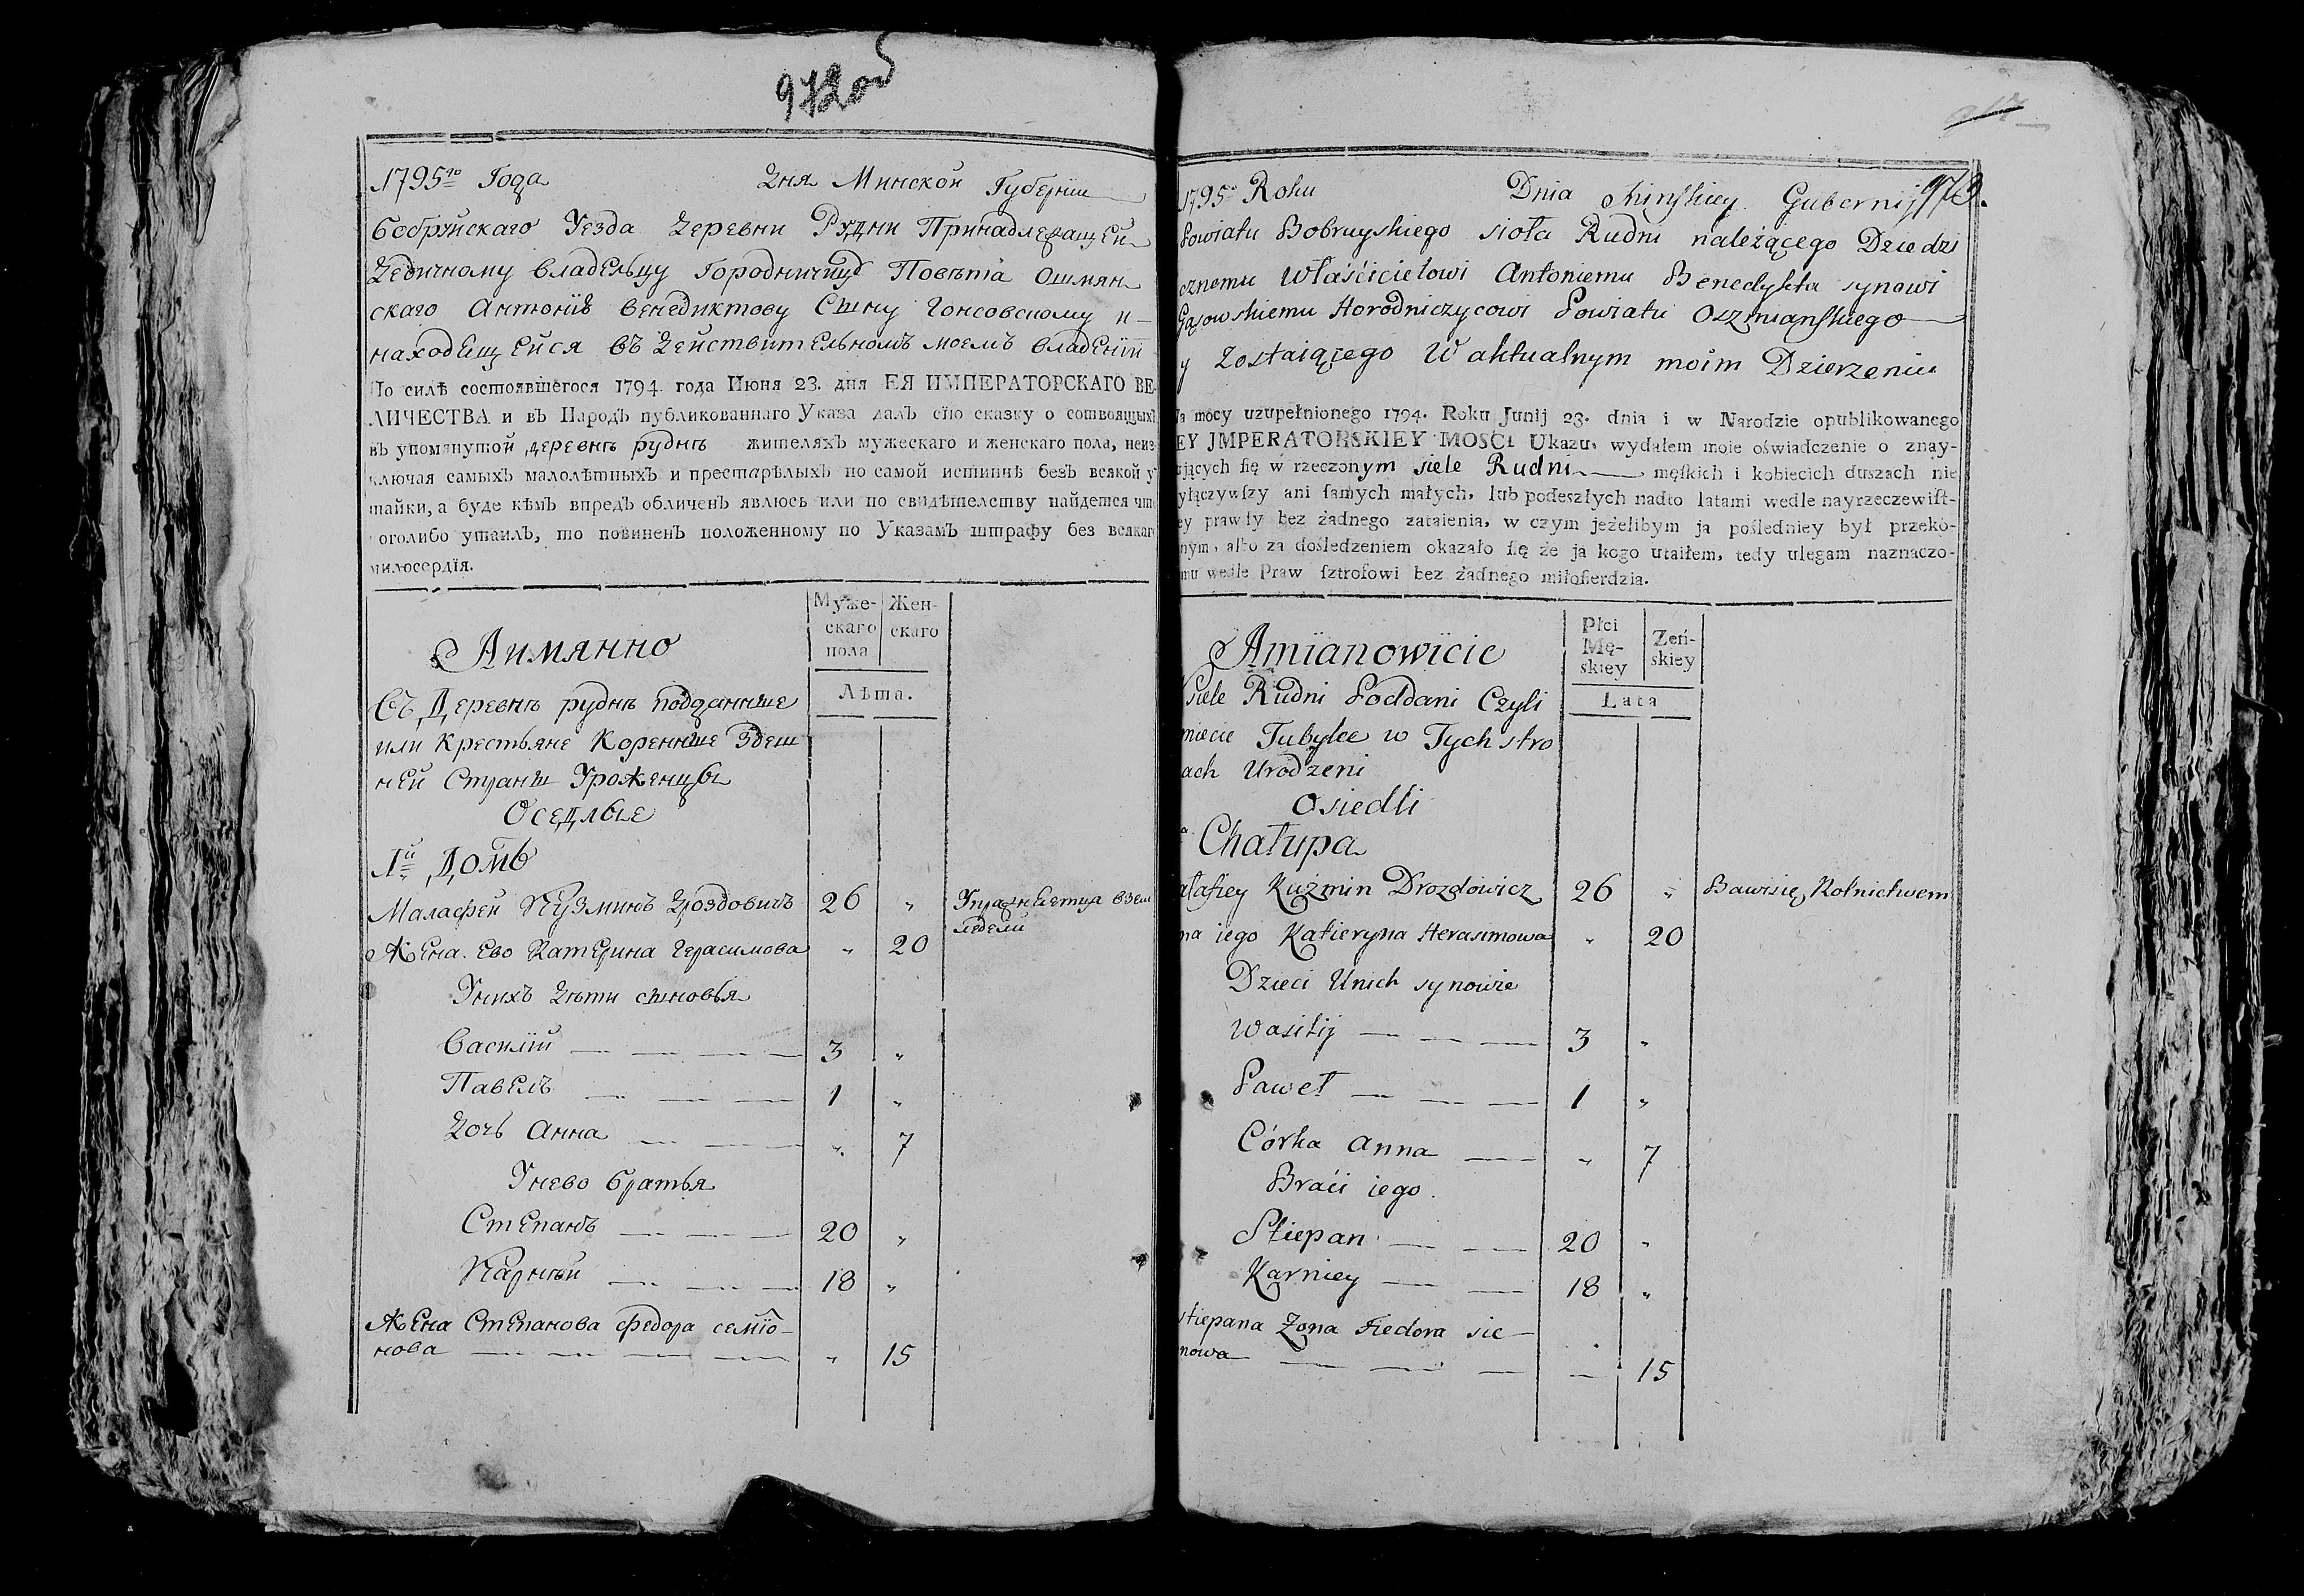 972 об
1795го Года Дня Минской Губернии
Бобруйскаго Уезда деревни Рудни Принадлежащей
Дедичному владельцу Городничицу Повѣта Ошмян
скаго Антонію Венедиктову Сыну Гонсовскому и
находящейся въ действительномъ моемъ владеніи
По силѣ состоявшегося 1794. года Июня 23. дня ЕЯ ИМПЕРАТОРСКАГО ВЕ-
ЛИЧЕСТВА и въ Народъ публикованнаго Указа далъ сію сказку о сотвоящыхъ
въ упомянутой деревнѣ руднѣ жителяхъ мужескаго и женскаго пола, неиз-
ключая самыхъ малолѣтныхъ и престарѣлыхъ по самой истиннѣ безъ всякой у
тайки, а буде кѣмъ впредъ обличенъ явлюсь или по свидѣтелству найдется что
оголибо утаилъ, то повиненъ положенному по Указамъ штрафу без всякаго
милосердїя.
Аимянно
Муже-
скаго
пола
Жен-
скаго
Лѣта.
Съ Деревнѣ руднѣ подданные
или Крестьяне Коренные Здеш
ней Страны Уроженцы
Оседлые
1й Домъ
Малафей Кузминъ Дроздовичъ 26 „ Упражняетца взем
ледели
Жена. Ево Катерина Герасимова „ 20
Унихъ Дѣти сыновья
Василій 3 „
Павелъ 1 „
Дочь Анна „ 7
Унево братья
Степанъ 20 „
Карнѣй 18 „
Жена Степанова федора семїо-
нова „ 15
973.
1795 Roku Dnia Minskiey Gubernij
Powiatu Bobruyskiego sioła Rudni należącego Dziedzi
cznemu Właścicielowi Antoniemu Benedykta synowi
Gąsowskiemu Horodniczycowi Powiatu Oszmianskiego
y Zostaiącego W aktualnym moim Dzierzeniu
Na mocy uzupełnionego 1794. Roku Junij 23. dnia i w Narodzie opublikowanego
EY JMPERATORSKIEY MOSCI Ukazu, wydałem moie oświadczenie o znay-
ujących ſię w rzeczonym siele Rudni męſkich i kobiecich duszach nie
yłączywſzy ani ſamych małych, lub podeszłych nadto latami wedle nayrzeczewiſt-
ey prawdy bez żadnego zataienia, w czym jeżelibym ja pośledniey był przeko-
nym, albo za dośledzeniem okazało ſię że ja kogo utaiłem, tedy ulegam naznaczo-
mu wedle Praw ſztrofowi bez żadnego miłoſierdzia.
Amïanowicie
Płci
Mę-
skiey
Zeń-
skiey
Lata
Siele Rudni Poddani Czyli
miecie Tubylce w Tych stro
ach Urodzeni
Osiedli
Chałupa
ałafiey Kuźmin Drozdowicz 26 „ Bawisię Rolnictwem
na iego Katieryna Herasimowa „ 20
Dzieci Unich synowie
Wasilij 3 „
Paweł 1 „
Córka Anna „ 7
Braci iego.
Stiepan 20 „
Karniey 18 „
Stiepana Zona Fiedora sie-
nowa 15